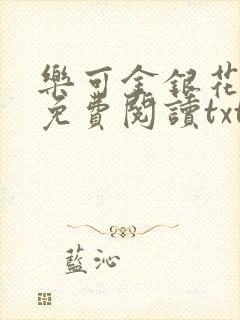 樂可金銀花
免費閱讀txt
藍沁